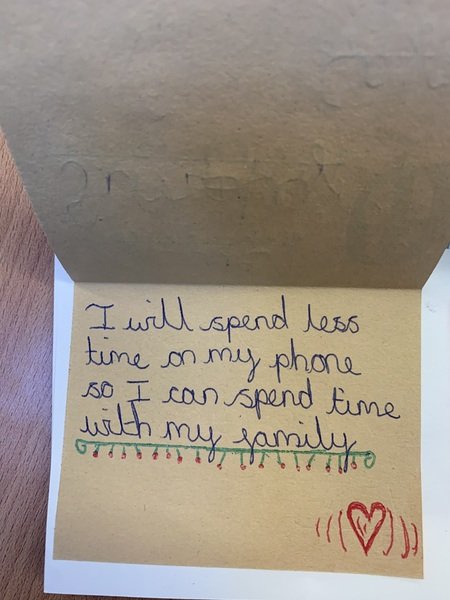 I will spend less
time on my phone
so I can spend time
with my family